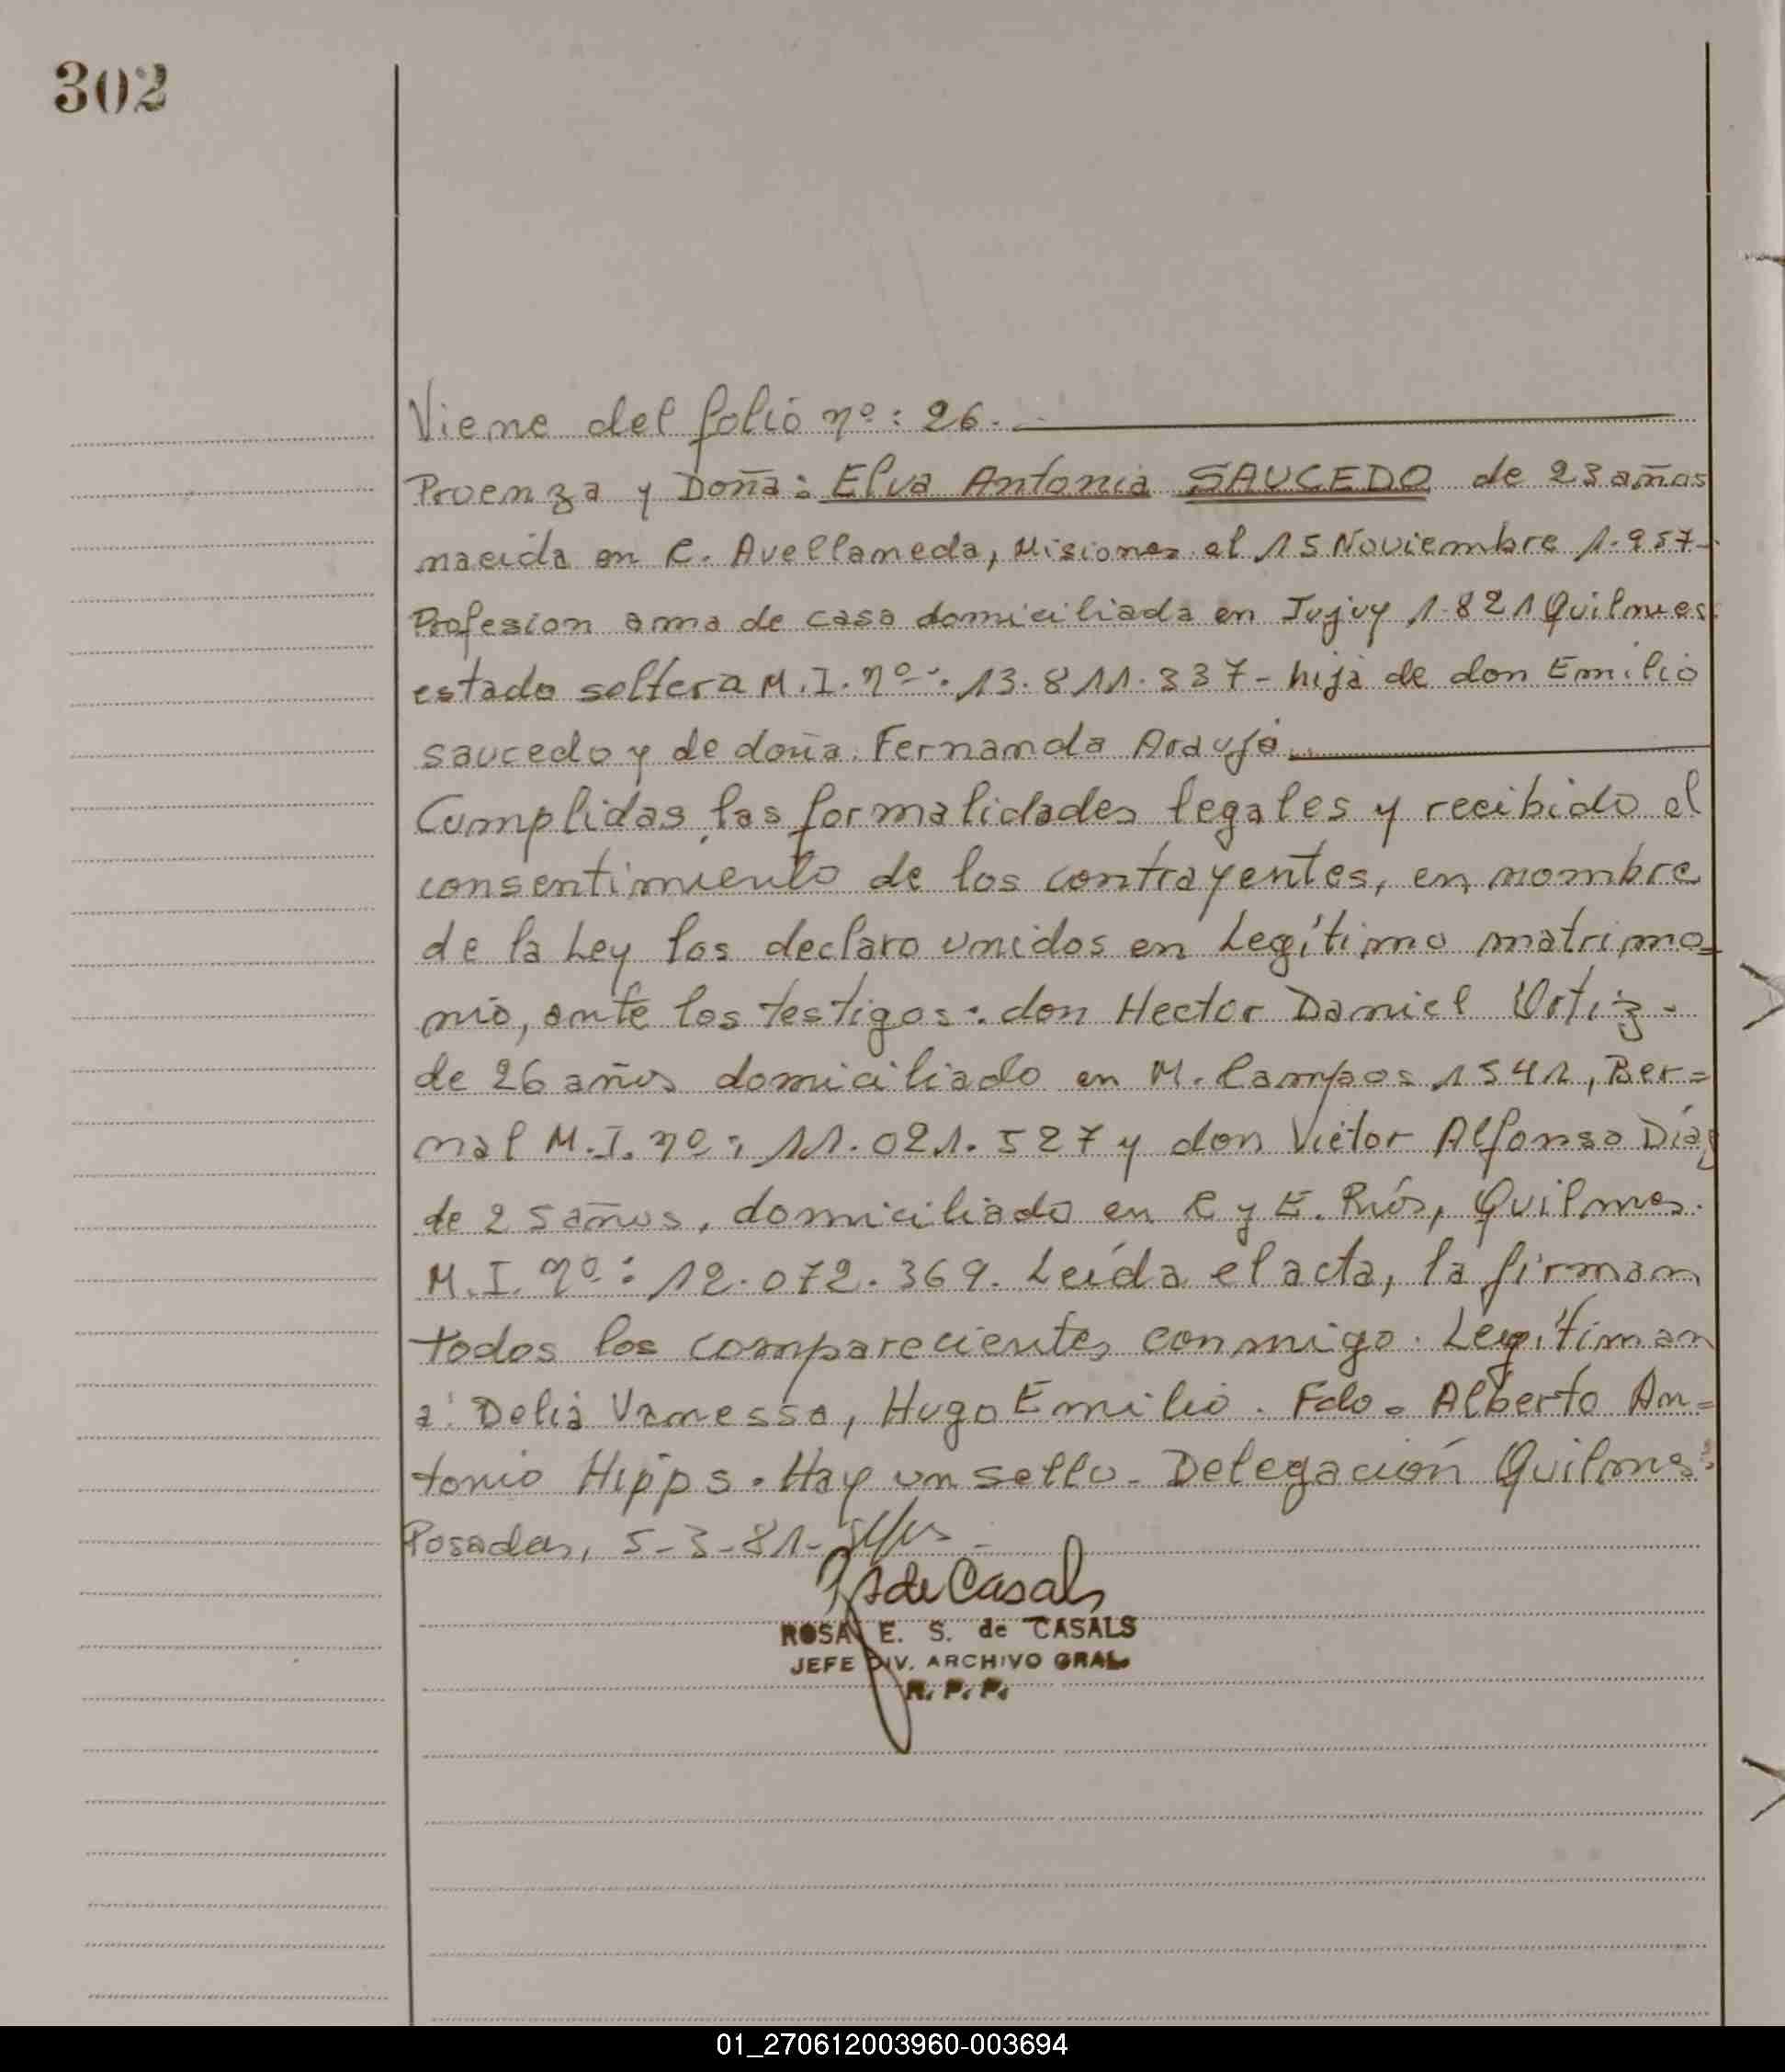 302
Viene del folio nº: 26.
Proenza y Doña: Elva Antonia SAUCEDO de 23 años
nacida en C. Avellaneda, Misiones el 15 Noviembre 1.957-
Profesion ama de casa domiciliada en Jujuy 1.821 Quilmes
estado soltera M.I. nº: 13.811.337- hija de don Emilio
saucedo y de doña Fernanda Araujo
Cumplidas las formalidades legales y recibido el
consentimiento de los contrayentes, en nombre
de la Ley los declaro unidos en Legítimo matrimo=
nio, ante los testigos: don Hector Daniel Ortiz-
de 26 años domiciliado en M. Campos 1541, Ber=
nal M.I. nº: 11.021.527 y don Victor Alfonso Díaz
de 25 años, domiciliado en C y E. Ríos, Quilmes.
M.I. nº: 12.072.369. Leída el acta, la firman
todos los comparecientes conmigo. Legitiman
a: Delia Vanessa, Hugo Emilio. Fdo. Alberto An=
tonio Hipps. Hay un sello- Delegación Quilmes:
Posadas, 5-3-81-
de Casals
ROSA E. S. de CASALS
JEFE DIV. ARCHIVO GRAL
R. P. P.
01_270612003960-003694